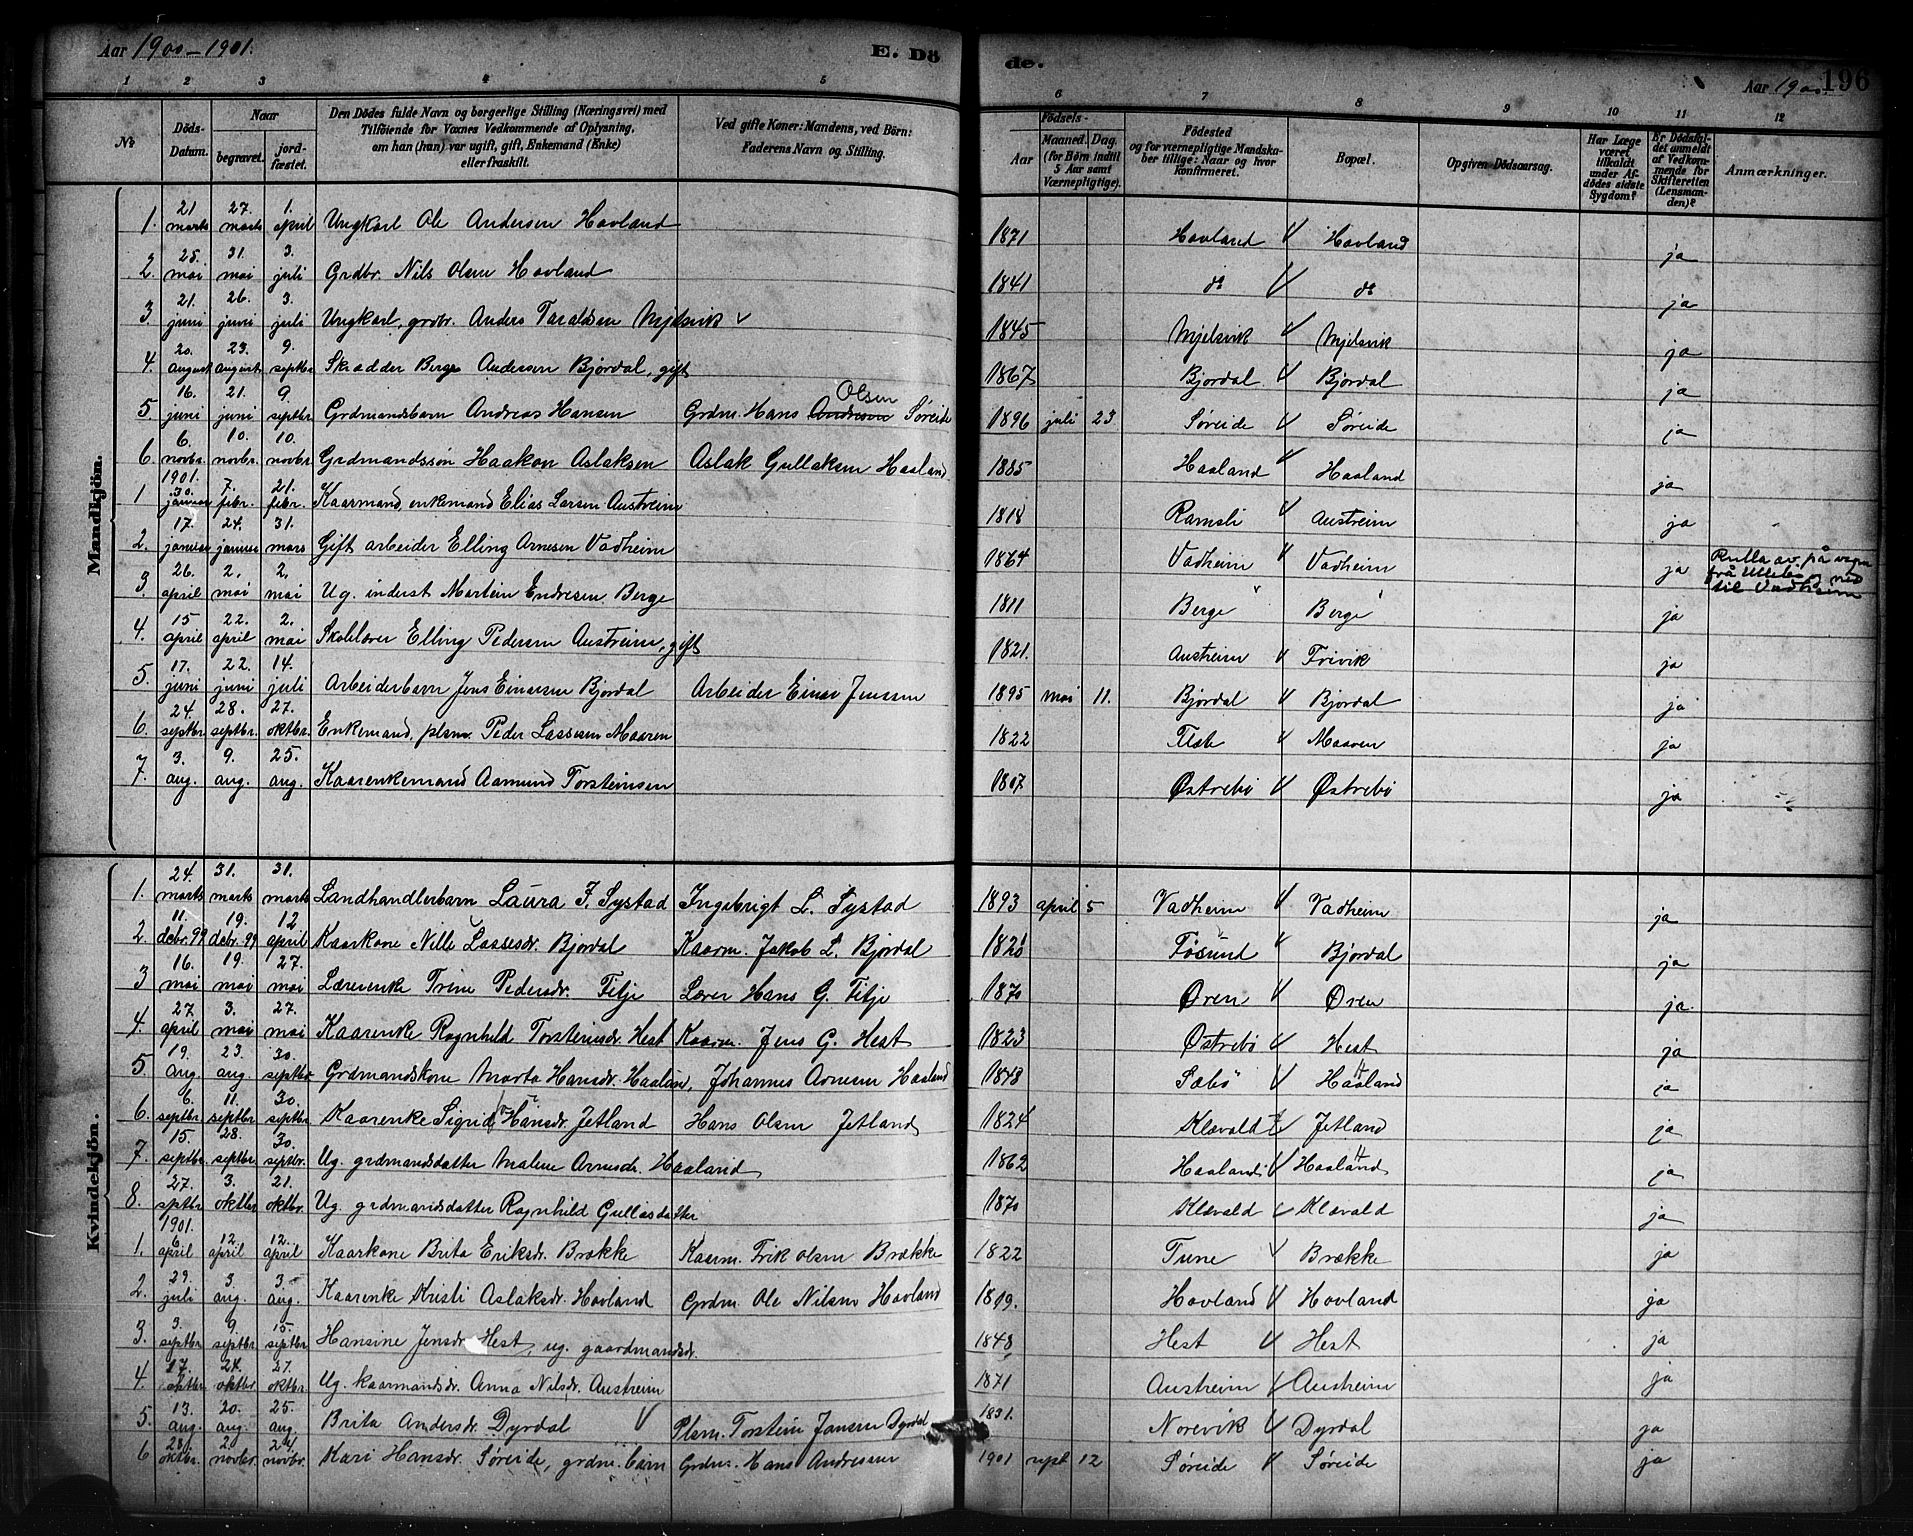 Aar 1900-1901. E. Dö de. Aar 1900 196
1 2 3 4 5 6 7 8 9 10 11 12
№ Döds-Datum. Naar begravet. jordfæstet. Den Dödes fulde Navn og borgerlige Stilling (Næringsvei) med Tilföiende for Voxnes Vedkommende af Oplysning, om han (hun) var ugift, gift, Enkemand (Enke) eller fraskilt. Ved gifte Koner: Mandens, ved Börn: Faderens Navn og Stilling. Födsels- Aar Maaned. Dag. (for Börn indtil 5 Aar samt Værnepligtige). Födested og for værnepligtige Mandskaber tillige: Naar og hvor konfirmeret. Bopæl. Opgiven Dödsaarsag. Har Læge været tilkaldt under Afdödes sidste Sygdom? Er Dödsfaldet anmeldt af Vedkommende for Skifteretten (Lensmanden)? Anmærkninger.
Mandkjön.
1. 21 marts 27. marts 1. april Ungkarl Ole Andersen Hovland 1871 Hovland Hovland ja
2. 25. mai 31. mai 3. juli Grdbr. Nils Olsen Hovland 1841 do do ja
3. 21. juni 26. juni 3. juli Ungkarl, grdbr. Anders Taraldsen Mjelsvik 1845 Mjelsvik Mjelsvik ja
4. 20. august 23. august 9. septbr Skrædder Berge Andersen Bjordal, gift 1867 Bjordal Bjordal ja
5. 16. juni 21. juni 9. septbr Grdmandsbarn Andreas Hansen Grdm. Hans Andresen Olsen Søreide 1896 juli 23 Søreide Søreide ja
6. 6. novbr. 10. novbr. 10. novbr Grdmandssøn Haakon Aslaksen Aslak Gullaksen Haaland 1885 Haaland Haaland ja
1901.
1 30. januar 7. febr. 21. febr. Kaarmand, enkemand Elias Larsen Austreim 1818 Ramsli Austreim ja
2. 17. januar 24. januar 31. mars Gift arbeider Elling Arnesen Vadheim 1864 Vadheim Vadheim ja Rulla av på vegen frå Ullebø og ned til Vadheim
3 26. april 2. mai 2. mai Ug. inderst Martein Endresen Berge 1811 Berge Berge ja
4. 15 april 22. april 2. mai Skolelærer Elling Pedersen Austreim, gift 1821. Austreim Frivik ja
5. 17. juni 22. juni 14. juli Arbeiderbarn Jens Einarsen Bjordal Arbeider Einar Jenssen 1895 mai 11. Bjordal Bjordal ja
6. 24. septbr 28. septbr. 27. oktbr. Enkemand, plsm. Peder Lassesen Maaren 1822 Maaren ja
7. 3. aug. 9. aug. 25. aug. Kaarenkemand Aamund Torsteinsen 1807 Østrebø Østrebø ja
Kvindekjön.
1. 24. marts 31. marts 31. marts Landhandlerbarn Laura I. Systad Ingebrigt L. Systad 1893 april 5 Vadheim Vadheim ja
2. 11. debr. 99 19. debr. 99 12 april Kaarkone Nille Lassesdr. Bjordal Kaarm. Jakob L. Bjordal 1820 Føsund Bjordal ja
3 16. mai 19. mai 27. mai Lærerenke Trine Pedersdr. Titje Lærer Hans G. Titje 1870 Øren Øren ja
4. 27. april 3. mai 27. mai Kaarenke Ragnhild Torsteinsdr. Hest Kaarm. Jens G. Hest 1823 Østrebø Hest ja
5. 19. aug. 23. aug 30. septbr Grdmandskone Marta Hansdr. Haaland, Johannes Arnesen Haaland 1848 Sæbø Haaland ja
6. 6. septbr 11. septbr 30. septbr Kaarenke Sigrid Hansdr. Jetland Hans Olsen Jetland 1824 Klævald Jetland ja
7. 15. septbr. 28. septbr. 30. septbr. Ug. grdmandsdatter Malene Arnesdr. Haaland 1862 Haaland Haaland ja
8. 27. sptbr 3. oktbr 21. oktbr. Ug. grdmandsdatter Ragnhild Gullaksdatter 1870 Klævald Klævald ja
1901.
1. 6. april 12. april 12. april Kaarkone Brita Eriksdr. Brække Kaarm. Erik Olsen Brække 1822 Tune Brække ja
2. 29. juli 3. aug. 3. aug. Kaarenke Kristi Aslaksdr. Hovland Grdm. Ole Nilsen Hovland 1819. Hovland Hovland ja
3. 3. septbr 9. septbr 15. septbr Hansine Jensdr. Hest, ug. gaardmandsdr. 1848 Hest Hest ja
4. 17. oktbr 24. oktbr 27. oktbr. Ug. kaarmandsdr. Anna Nilsdr. Austreim 1871 Austreim Austreim ja
5 13. aug. 20. aug. 25. aug. Brita Andersdr. Dyrdal Plsm. Torstein Jansen Dyrdal 1831. Norevik Dyrdal ja
6 28. oktbr. 2. novbr. 24. novbr. Kari Hansdr. Søreide, grdm. barn Grdm. Hans Andresen 1901 sept 12 Søreide Søreide ja